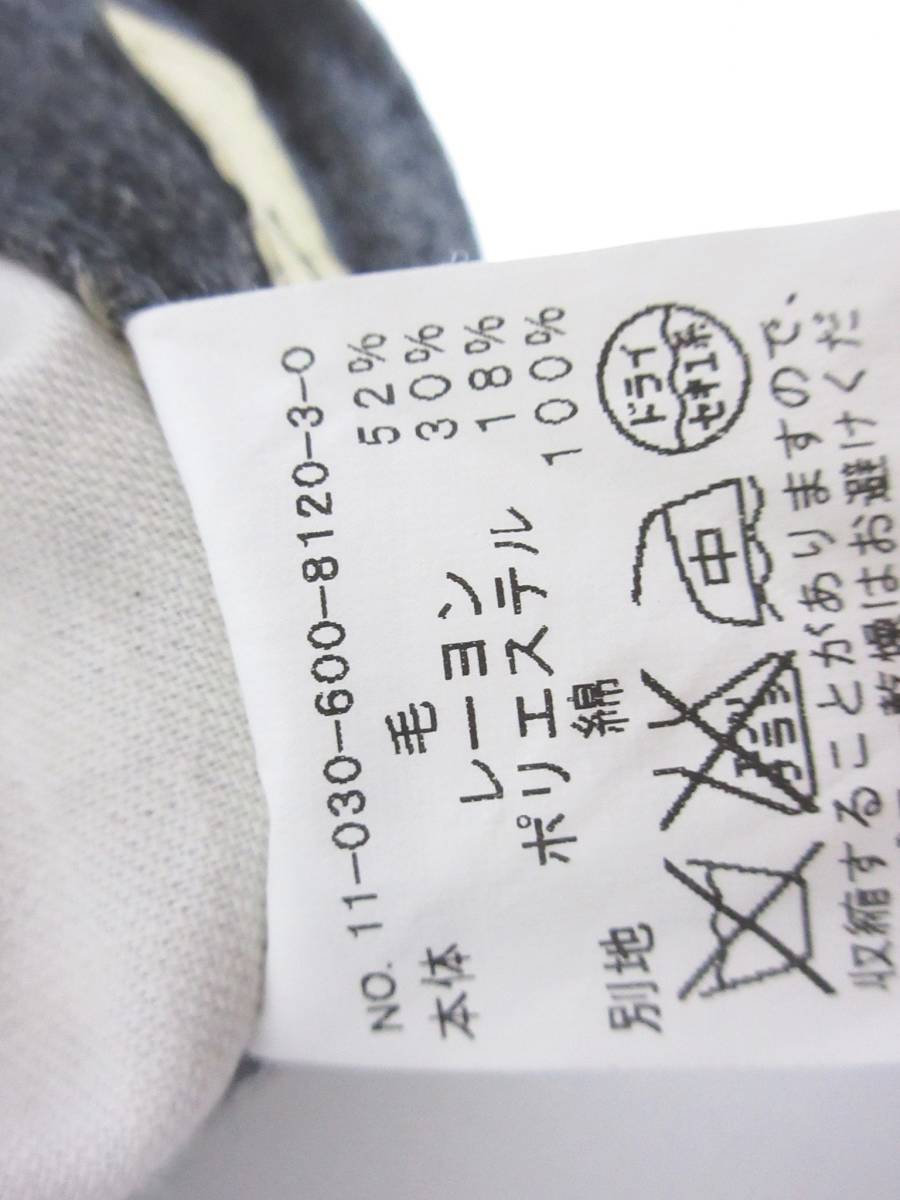 NO. 11-030-600-8120-3-0
本体 毛 52%
レーヨン 30%
ポリエステル 18%
別地 綿 100%
エンソ
サラシ
中
ドライ
セキユ系
収縮することがありますので、
乾燥はお避けくだ